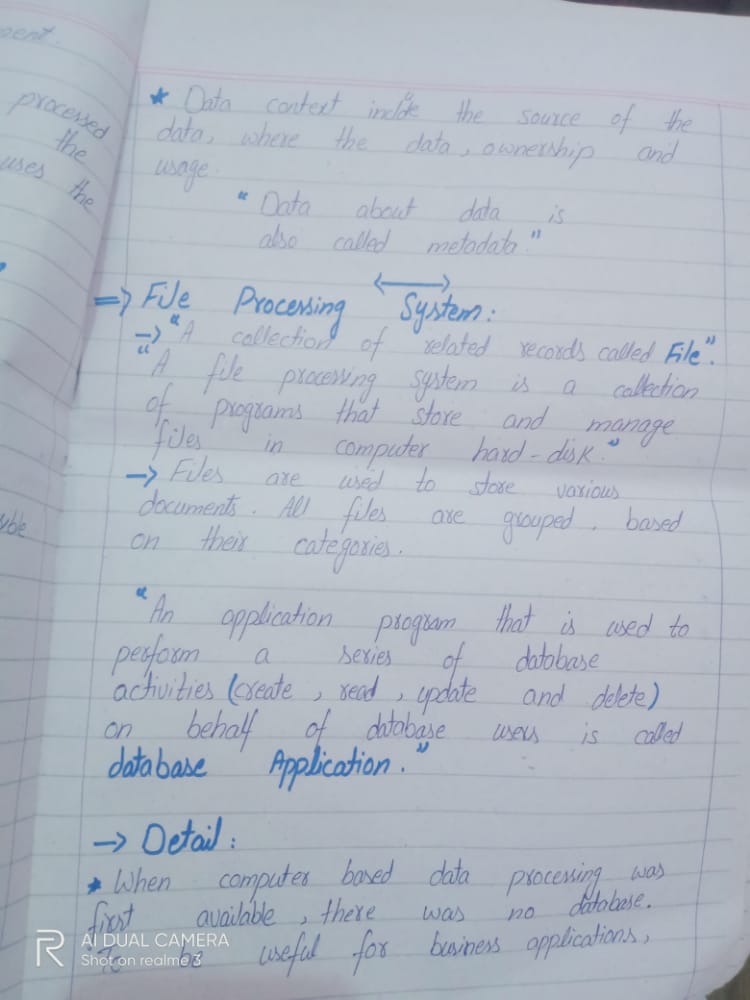 ment.
processed
the
uses the
sible
* Data context include the source of the
data, where the data, ownership and
usage.
"Data about data is
also called metadata"
=> File Processing System:
-> "A collection of related records called File".
"A file processing system is a collection
of programs that store and manage
files in computer hard-disk."
-> Files are used to store various
documents. All files are grouped, based
on their categories.
"An application program that is used to
perform a series of database
activities (create, read, update and delete)
on behalf of database users is called
database Application."
-> Detail:
* When computer based data processing was
first available, there was no database.
To be useful for business applications,
AI DUAL CAMERA
Shot on realme 3